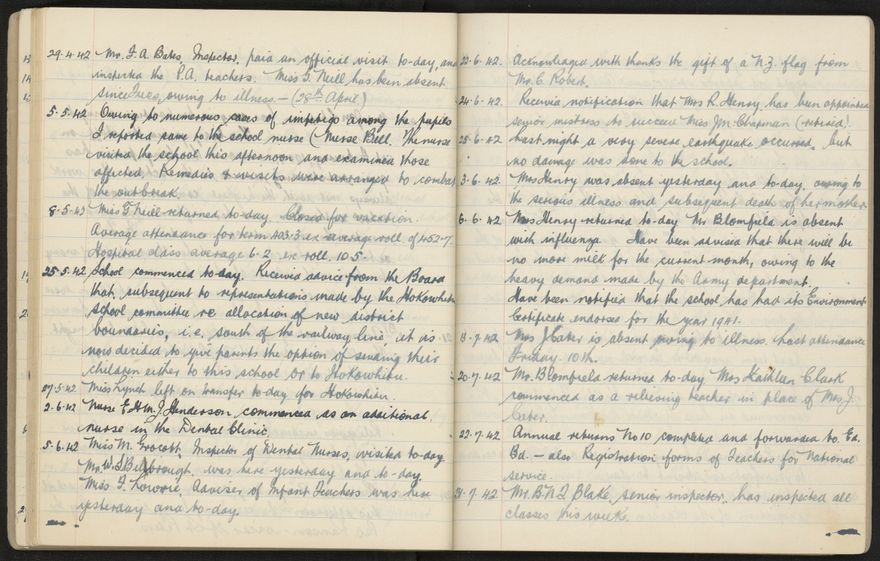 29.4.42 Mr. F. A. Bates, Inspector, paid an official visit to-day, and
inspected the P.A. teachers. Miss G. Neill has been absent
since Tues, owing to illness. — (28th April)
5.5.42 Owing to numerous cases of impetigo among the pupils
I reported same to the school nurse (Nurse Bell. The nurse
visited the school this afternoon and examined those
affected. Remedies & visits were arranged to combat
the outbreak.
8.5.42 Miss G Neill returned to-day. Closed for vacation.
Average attendance for term 403.3 ex average roll of 452.7.
Hospital class average 6.2 ex roll 10.5.
25.5.42 School commenced to-day. Received advice from the Board
that, subsequent to representations made by the Hokowhitu
School committee re allocation of new district
boundaries, i.e. south of the railway line, it is
now decided to give parents the option of sending their
children either to this school or to Hokowhitu.
27.5.42 Miss Lynch left on transfer to-day for Hokowhitu.
2.6.42 Nurse E. H. M. J. Henderson, commenced as an additional
nurse in the Dental Clinic.
5.6.42 Miss M. Grocott, Inspector of Dental Nurses, visited to-day
Mr. W. S. was here yesterday and to-day.
Miss F. Lowrie, Adviser, of Infant Teachers was here
yesterday and to-day.
22.6.42. Acknowledged with thanks the gift of a N.Z. flag from
Mr. C. Robert.
24.6.42. Received notification that Mrs R. Henry, has been appointed
senior mistress to succeed Miss J.M. Chapman (retired).
25.6.42 Last night a very severe earthquake occurred, but
no damage was done to the school.
3.6.42. Mrs Henry was absent yesterday and to-day, owing to
the serious illness and subsequent death of her mother.
6.6.42 Mrs Henry returned to-day Mr Blomfield is absent
with influenza. Have been advised that there will be
no more milk for the current month, owing to the
heavy demand made by the Army department.
Have been notified that the school has had its Environment
Certificate endorsed for the year 1941.
13.7.42 Mrs J. Cater is absent owing to illness. Last attendance
Friday 10th.
20.7.42 Mr. Blomfield returned to-day Mrs Kathleen Clark
commenced as a relieving teacher in place of Mrs J.
Cater.
22.7.42. Annual returns No 10 completed and forwarded to Ed.
Bd. — also Registration forms of Teachers for National
service.
31.7.42 Mr. B. N. T. Blake, senior inspector, has inspected all
classes this week.